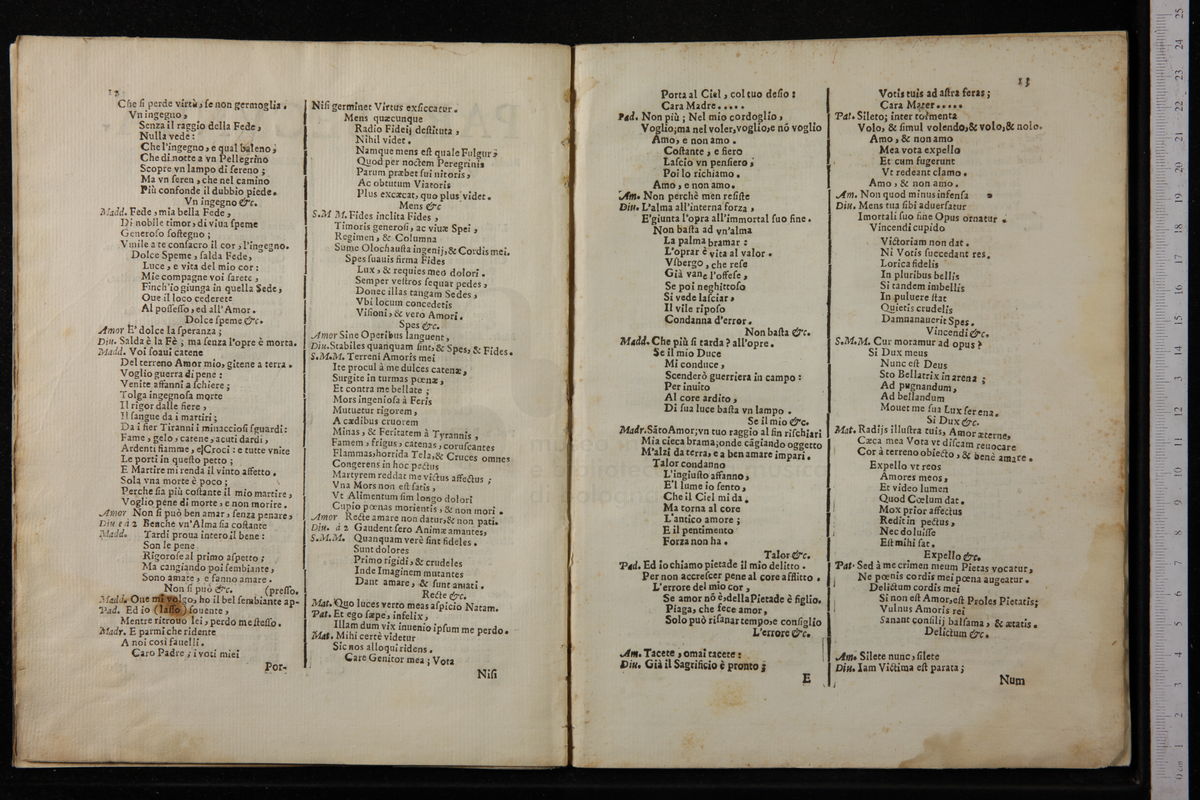 12
Che si perde virtù, se non germoglia.
Vn ingegno,
Senza il raggio della Fede,
Nulla vede:
Che l'ingegno, e qual baleno,
Che di notte a vn Pellegrino
Scopre vn lampo di sereno;
Ma vn seren, che nel camino
Più confonde il dubbio piede.
Vn ingegno &c.
Madd. Fede, mia bella Fede,
Di nobile timor, di viua speme
Generoso sostegno;
Vmile a te consacro il cor, l'ingegno.
Dolce Speme, salda Fede,
Luce, e vita del mio cor:
Mie compagne voi sarete,
Finch'io giunga in quella Sede,
Oue il loco cederete
Al possesso, ed all'Amor.
Dolce speme &c.
Amor E' dolce la speranza;
Diu. Salda è la Fè; ma senza l'opre è morta.
Madd. Voi soaui catene
Del terreno Amor mio, gitene a terra.
Voglio guerra di pene:
Venite affanni a schiere;
Tolga ingegnosa morte
Il rigor dalle fiere,
Il sangue da i martiri;
Da i fier Tiranni i minacciosi sguardi:
Fame, gelo, catene, acuti dardi,
Ardenti fiamme, e Croci: e tutte vnite
Le porti in questo petto;
E Martire mi renda il vinto affetto.
Sola vna morte è poco;
Perche sia più costante il mio martire,
Voglio pene di morte, e non morire.
Amor Non si può ben amar, senza penare,
Diu e à 2 Benche vn'Alma sia costante
Madd. Tardi proua intero il bene:
Son le pene
Rigorose al primo aspetto;
Ma cangiando poi sembiante,
Sono amate, e fanno amare.
Non si può &c. (presso.
Madd. Oue mi volgo, ho il bel sembiante ap-
Pad. Ed io (lasso) souente,
Mentre ritrouo lei, perdo me stesso.
Madr. E parmi che ridente
A noi così fauelli.
Caro Padre; i voti miei
Por-
Nisi germinet Virtus exsiccatur.
Mens quæcunque
Radio Fidei destituta,
Nihil videt.
Namque mens est quale Fulgur,
Quod per noctem Peregrinis
Parum præbet sui nitoris,
Ac obtutum Viatoris
Plus excæcat, quo plus videt.
Mens &c
S.M M. Fides inclita Fides,
Timoris generosi, ac viuæ Spei,
Regimen, & Columna
Sume Olochausta ingenij, & Cordis mei.
Spes suauis firma Fides
Lux, & requies meo dolori.
Semper vestros sequar pedes,
Donec illas tangam Sedes,
Vbi locum concedetis
Visioni, & vero Amori.
Spes &c.
Amor Sine Operibus languent,
Diu. Stabiles quanquam sint, & Spes, & Fides.
S.M.M. Terreni Amoris mei
Ite procul à me dulces catenæ,
Surgite in turmas pœnæ,
Et contra me bellate;
Mors ingeniosa à Feris
Mutuetur rigorem,
A cædibus cruorem
Minas, & Feritatem à Tyrannis,
Famem, frigus, catenas, coruscantes
Flammas, horrida Tela, & Cruces omnes
Congerens in hoc pectus
Martyrem reddat me victus affectus;
Vna Mors non est satis,
Vt Alimentum sim longo dolori
Cupio pœnas morientis, & non mori.
Amor Recte amare non datur, & non pati.
Diu. à 2 Gaudent sero Animæ amantes,
S.M.M. Quanquam verè sint fideles.
Sunt dolores
Primo rigidi, & crudeles
Inde Imaginem mutantes
Dant amare, & sunt amati.
Recte &c.
Mat. Quo luces verto meas aspicio Natam.
Pat. Et ego sæpe, infelix,
Illam dum vix inuenio ipsum me perdo.
Mat. Mihi certè videtur
Sic nos alloqui ridens.
Care Genitor mea; Vota
Nisi
13
Porta al Ciel, col tuo desio:
Cara Madre.....
Pad. Non più; Nel mio cordoglio,
Voglio; ma nel voler, voglio, e nō voglio
Amo, e non amo.
Costante, e fiero
Lascio vn pensiero,
Poi lo richiamo.
Amo, e non amo.
Am. Non perchè men resiste
Diu. L'alma all'interna forza,
E' giunta l'opra all'immortal suo fine.
Non basta ad vn'alma
La palma bramar:
L'oprar è vita al valor.
Vsbergo, che rese
Già vane l'offese,
Se poi neghittoso
Si vede lasciar,
Il vile riposo
Condanna d'error.
Non basta &c.
Madd. Che più si tarda? all'opre.
Se il mio Duce
Mi conduce,
Scenderò guerriera in campo:
Per inuito
Al core ardito,
Di sua luce basta vn lampo.
Se il mio &c.
Madr. Sāto Amor; vn tuo raggio al fin rischiari
Mia cieca brama; onde cāgiando oggetto
M'alzi da terra, e a ben amare impari.
Talor condanno
L'ingiusto affanno,
E'l lume io sento,
Che il Ciel mi da.
Ma torna al core
L'antico amore;
E il pentimento
Forza non ha.
Talor &c.
Pad. Ed io chiamo pietade il mio delitto.
Per non accrescer pene al core afflitto.
L'errore del mio cor,
Se amor nō è, della Pietade è figlio.
Piaga, che fece amor,
Solo può risanar tempo, e consiglio
L'errore &c.
Am. Tacete, omai tacete:
Diu. Già il Sagrificio è pronto;
E
Votis tuis ad astra feras;
Cara Mater.....
Pat. Sileto; inter tormenta
Volo, & simul volendo, & volo, & nolo.
Amo, & non amo
Mea vota expello
Et cum fugerunt
Vt redeant clamo.
Amo, & non amo.
Am. Non quod minus infensa
Diu. Mens tua sibi aduersatur
Imortali suo fine Opus ornatur.
Vincendi cupido
Victoriam non dat.
Ni Votis succedant res.
Lorica fidelis
In pluribus bellis
Si tandem imbellis
In puluere stat
Quietis crudelis
Damnauerit Spes.
Vincendi &c.
S.M.M. Cur moramur ad opus?
Si Dux meus
Nunc est Deus
Sto Bellatrix in arena;
Ad pugnandum,
Ad bellandum
Mouet me sua Lux serena.
Si Dux &c.
Mat. Radijs illustra tuis, Amor æterne,
Cæca mea Vota vt discam reuocare
Cor à terreno obiecto, & bene amare.
Expello vt reos
Amores meos,
Et video lumen
Quod Cœlum dat.
Mox prior affectus
Redit in pectus,
Nec doluisse
Est mihi sat.
Expello &c.
Pat. Sed à me crimen nieum Pietas vocatur,
Ne pœnis cordis mei pœna augeatur.
Delictum cordis mei
Si non est Amor, est Proles Pietatis;
Vulnus Amoris rei
Sanant consilij balsama, & ætatis.
Delictum &c.
Am. Silete nunc, silete
Diu. Iam Victima est parata;
Num